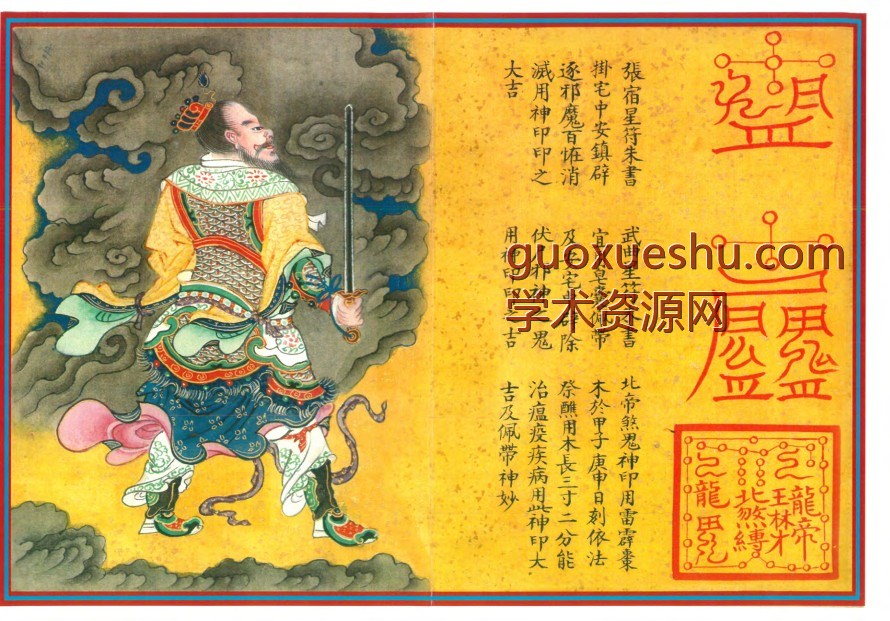 張宿星符朱書
掛宅中安鎮辟
逐邪魔百恠消
滅用神印印之
大吉
武曲星符朱書
佩帶
及 宅 辟除
伏 邪神 鬼
用神印印之吉
北帝煞鬼神印用雷霹棗
木於甲子庚申日刻依法
祭醮用木長三寸二分能
治瘟疫疾病用此神印大
吉及佩帶神妙
guoxueshu.com
学术资源网
龍帝
王林才
北煞縛
龍